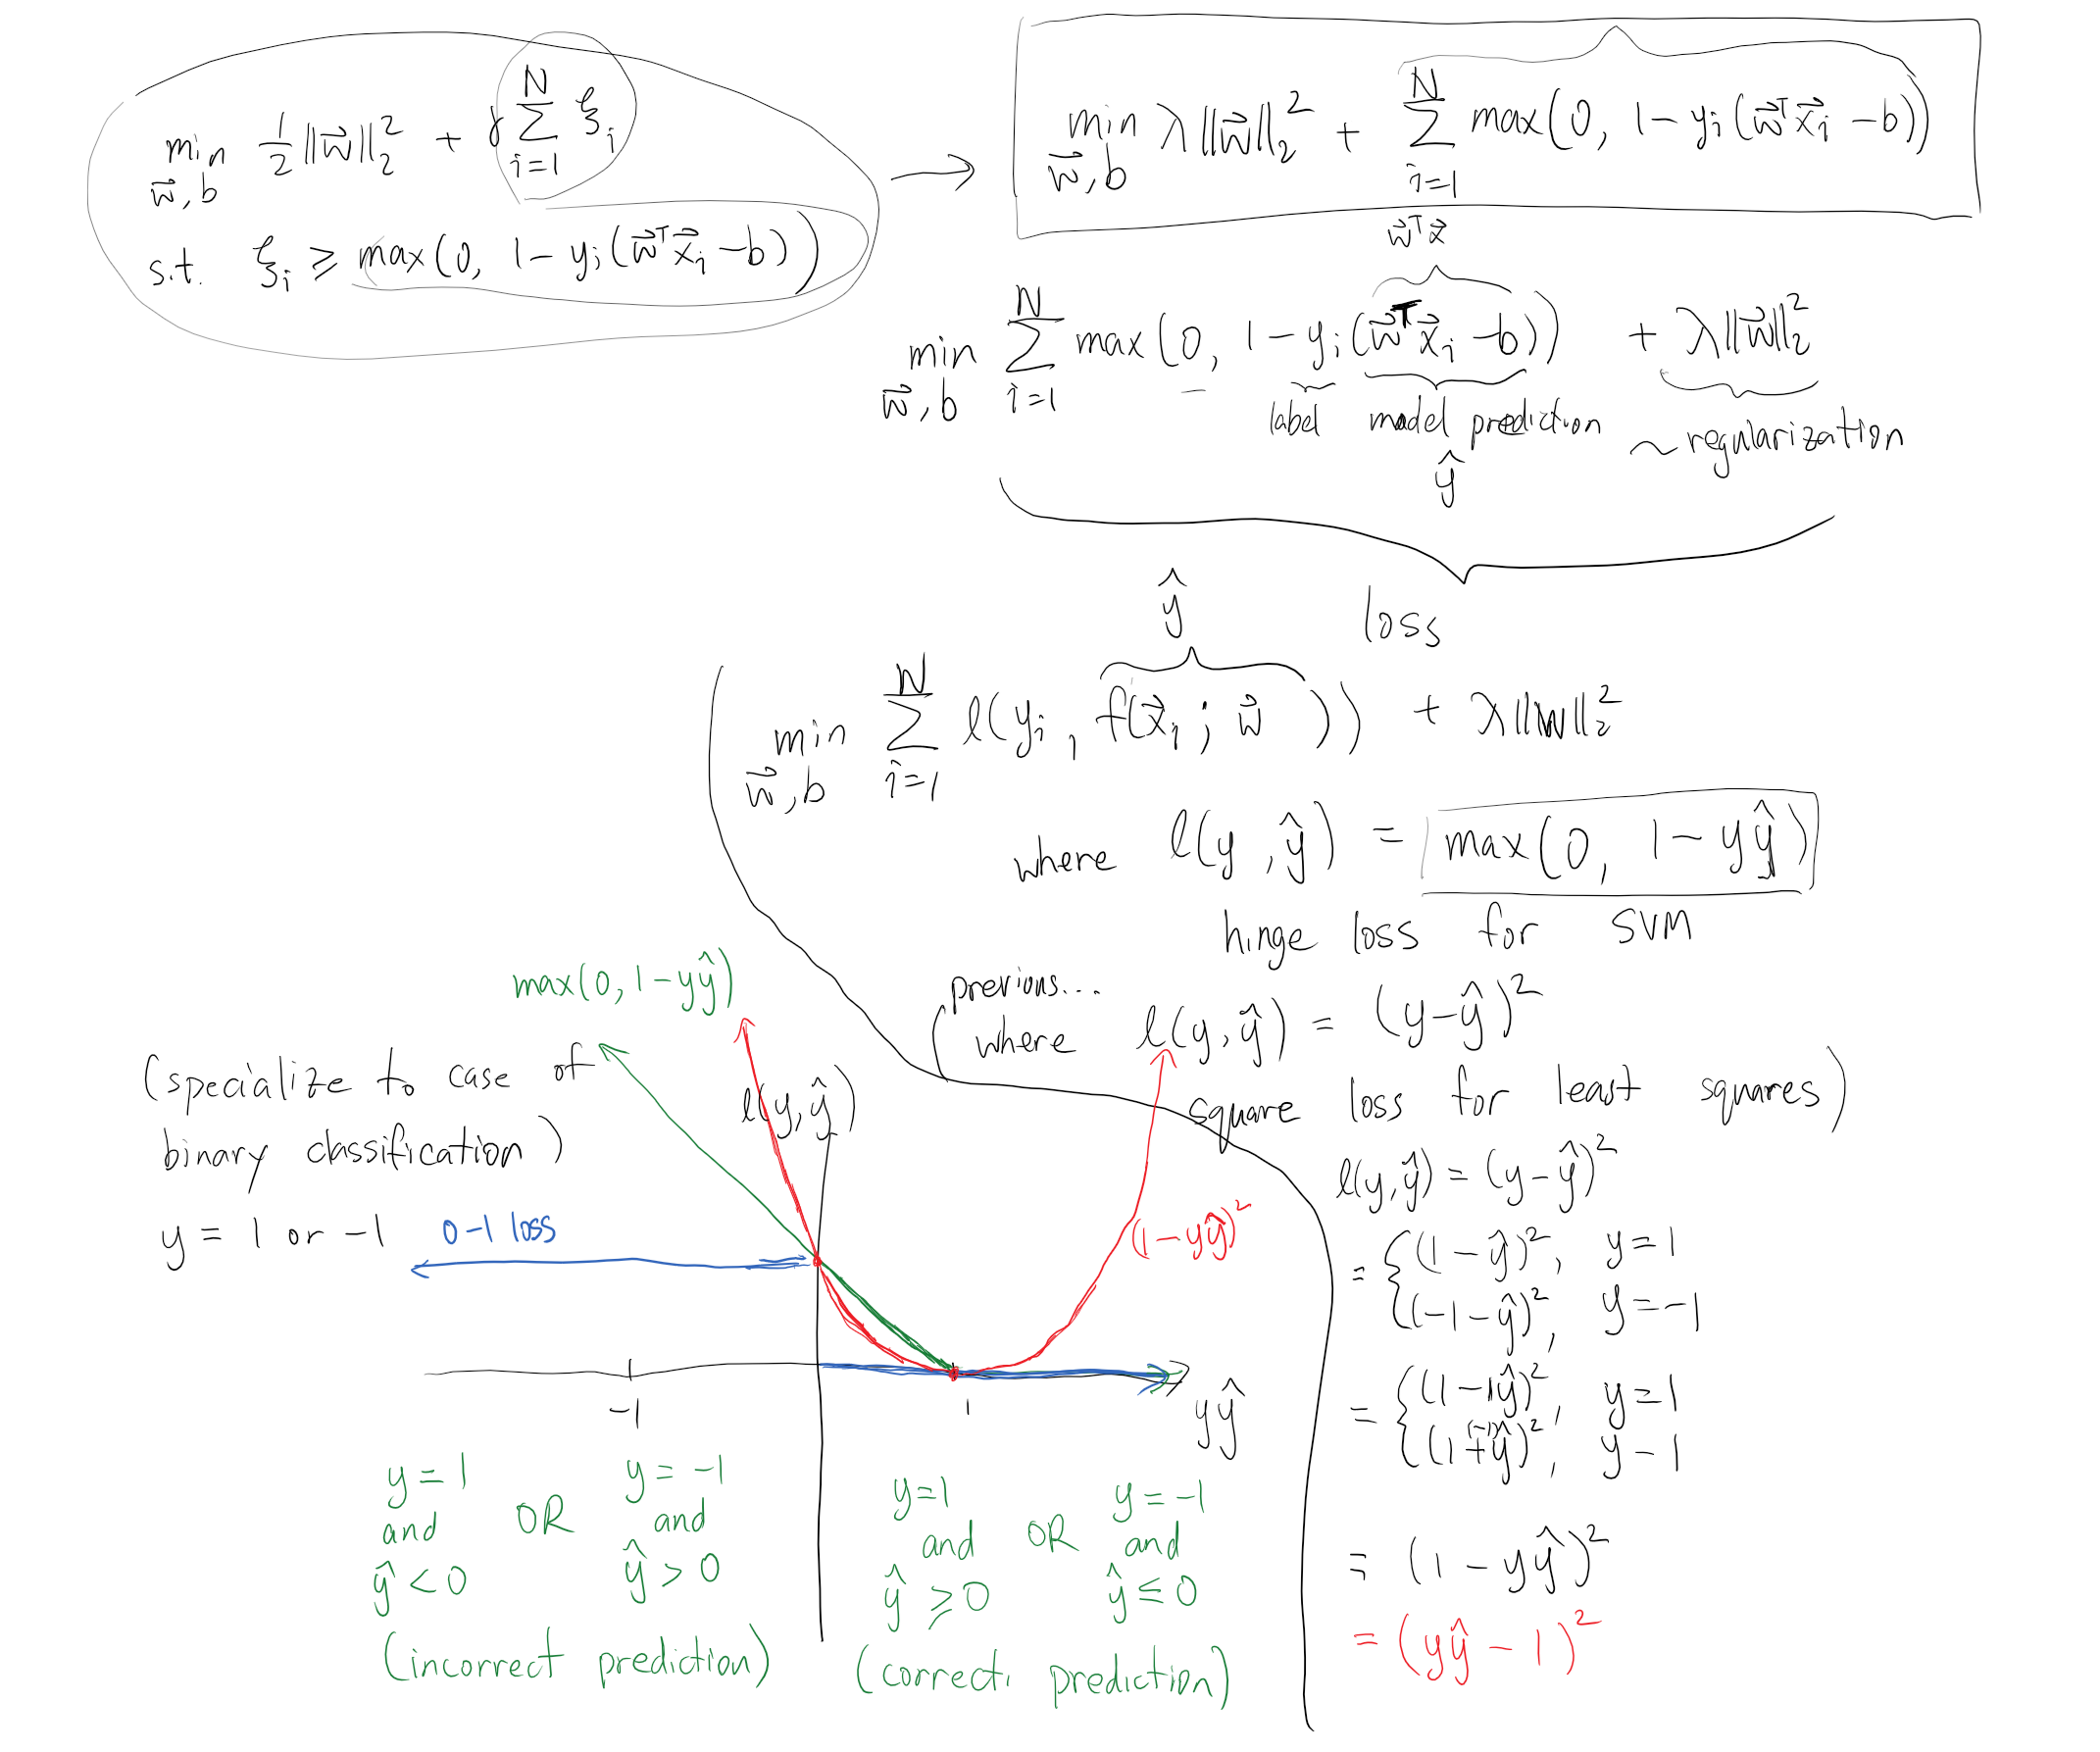 min ½‖w⃗‖₂² + γ ∑ ξᵢ
w⃗, b i=1 N
s.t. ξᵢ ≥ max(0, 1 − yᵢ(w⃗ᵀx⃗ᵢ − b))
→ min λ‖w⃗‖₂² + ∑ max(0, 1 − yᵢ(w⃗ᵀx⃗ᵢ − b))
w⃗, b i=1 N
w⃗ᵀx⃗
min ∑ max(0, 1 − yᵢ(w⃗ᵀx⃗ᵢ − b)) + λ‖w⃗‖₂²
w⃗, b i=1 N
label model prediction ~regularization
ŷ
loss
ŷ
min ∑ l(yᵢ, f(x⃗ᵢ; w⃗)) + λ‖w‖₂²
w⃗, b i=1 N
where l(y, ŷ) = max(0, 1 − yŷ)
hinge loss for SVM
(previous...
where l(y, ŷ) = (y − ŷ)²
square loss for least squares)
l(y, ŷ) = (y − ŷ)²
= { (1 − ŷ)², y = 1
(−1 − ŷ)², y = −1
= { (1 − 1ŷ)², y = 1
(1 + (−1)ŷ)², y − 1
= (1 − yŷ)²
= (yŷ − 1)²
max(0, 1 − yŷ)
(specialize to case of
binary classification)
y = 1 or −1
0−1 loss
l(y, ŷ)
(1 − yŷ)²
−1 1 yŷ
y = 1
and
ŷ < 0
OR
y = −1
and
ŷ > 0
(incorrect prediction)
y = 1
and
ŷ ≥ 0
OR
y = −1
and
ŷ ≤ 0
(correct. prediction)